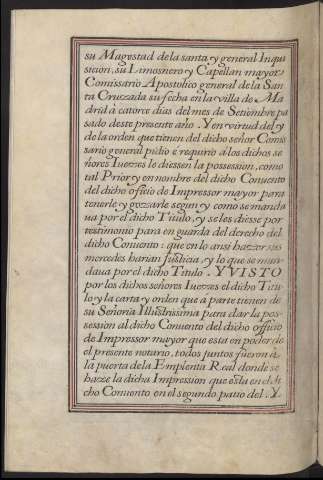 su Magestad de la santa y general Inqui
sicion, su Limosnero y Capellan mayor,
Comissario Apostolico general de la San
ta Cruzada su fecha en la villa de Ma
drid à catorce dias del mes de Setiembre pa
sado deste presente año. Y en virtud del y
de la orden que tienen del dicho señor Comis
sario general pidio e requirio a los dichos se
ñores Iuezes le diessen la possession, como
tal Prior y en nombre del dicho Conuento
del dicho oficio de Impressor mayor para
tenerle y gozzarle segun y como se manda
ua por el dicho Titulo, y se les diesse por
testimonio para en guarda del derecho del
dicho Conuento: que en lo ansi hazzer sus
mercedes harian justicia, y lo que se man
daua por el dicho Titulo. Y VISTO
por los dichos señores Iuezes el dicho Titu
lo y la carta y orden que a parte tienen de
su Señoria Illustrissima para dar la pos
session al dicho Conuento del dicho officio
de Impressor mayor que esta en poder de
el presente notario, todos juntos fueron à
la puerta de la Emplenta Real donde se
hazze la dicha Impression que esta en el di
cho Conuento en el segundo patio del. Y